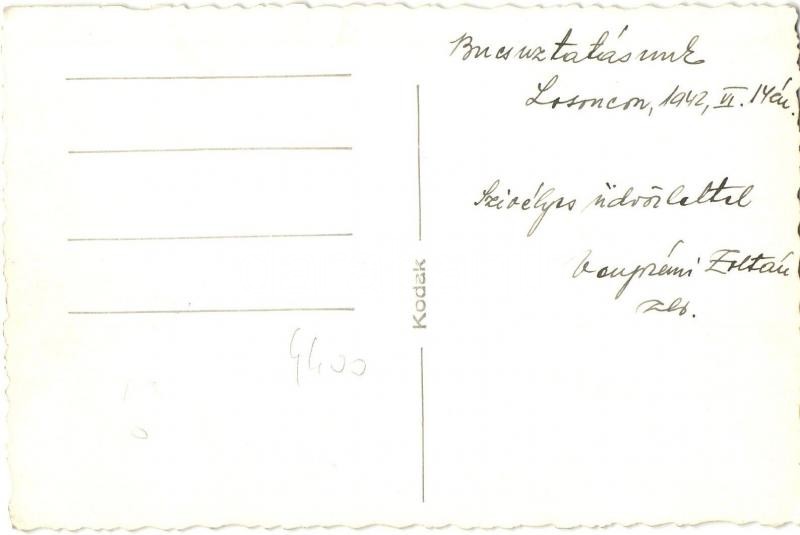 Bucsuztatásunk
Losoncon, 1942, VI. 14én.
Szivélyes üdvözlettel
Zoltán
Kodak
4400